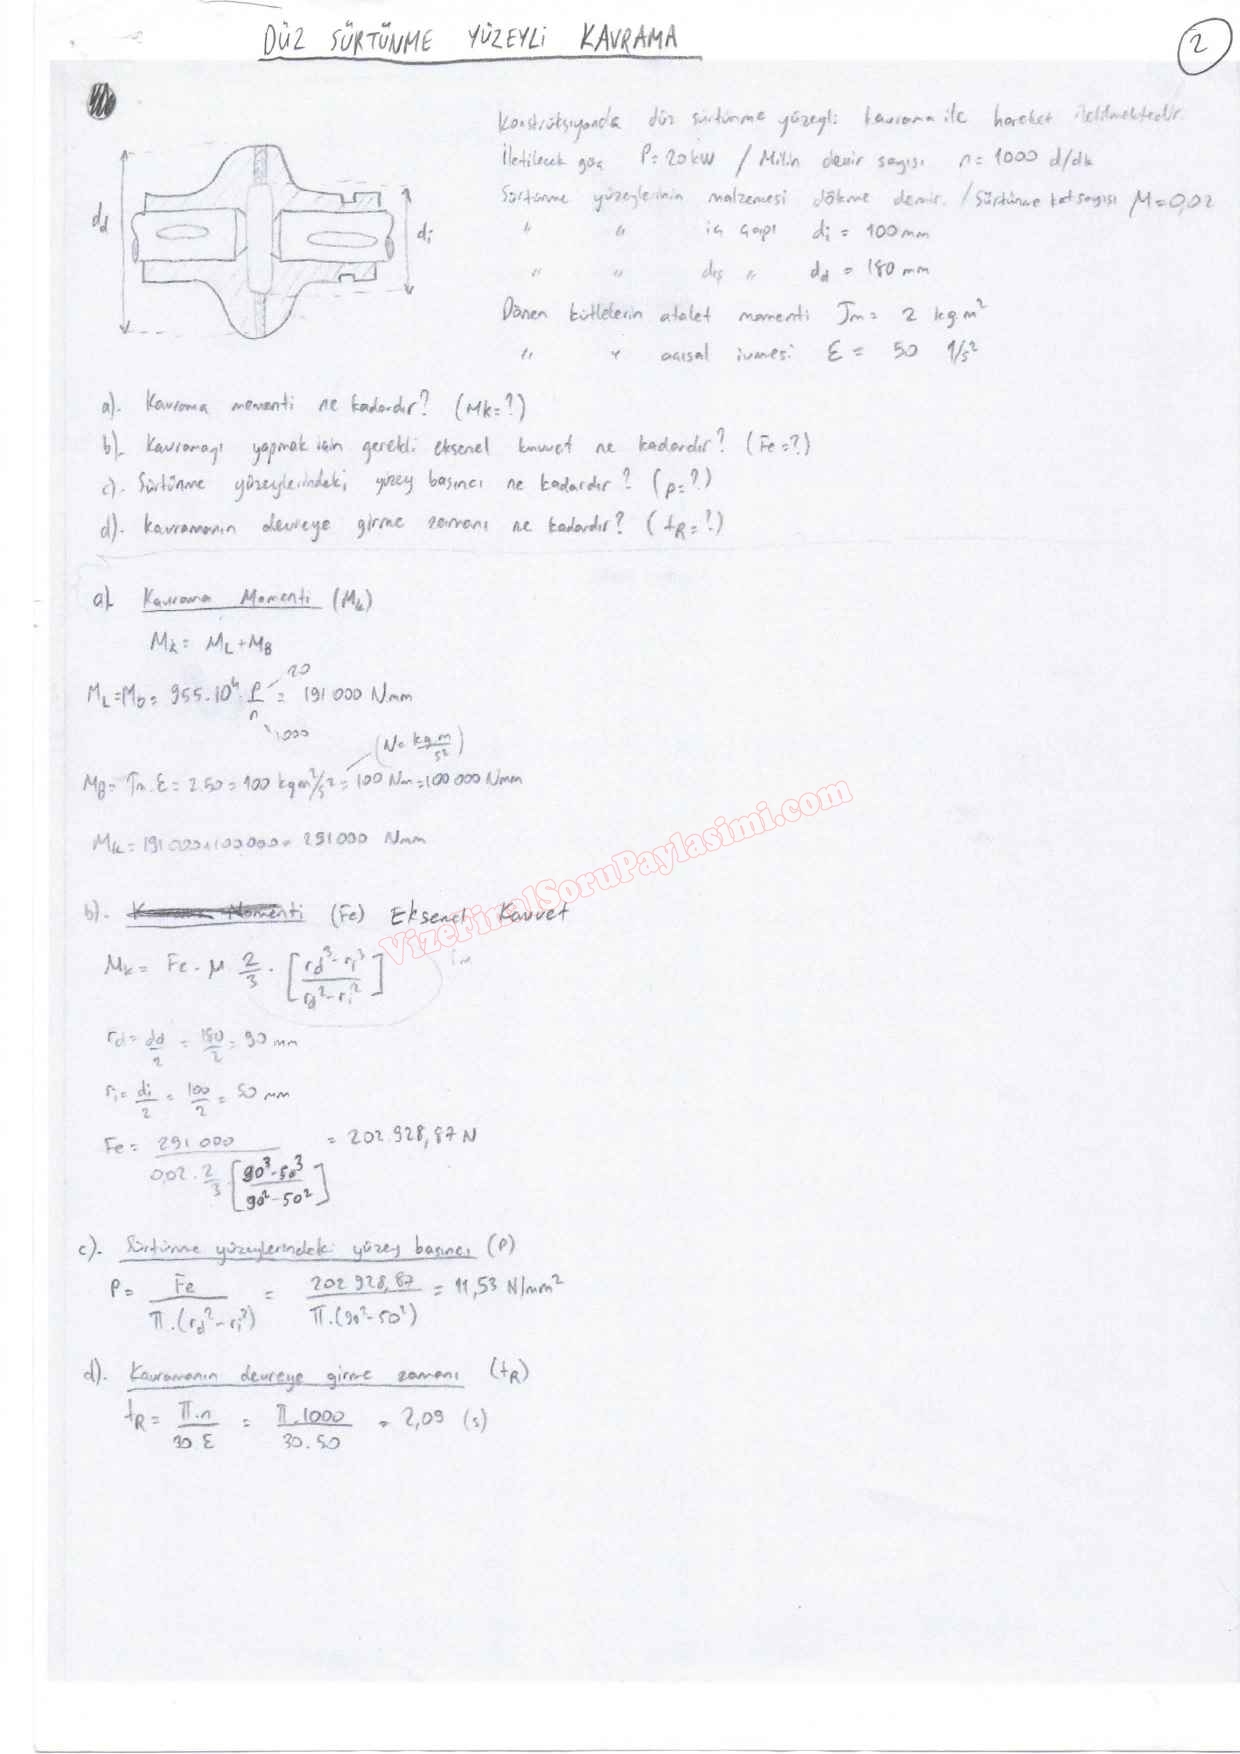 DÜZ SÜRTÜNME YÜZEYLİ KAVRAMA
2
Konstrüksiyonda düz sürtünme yüzeyli kavrama ile hareket iletilmektedir.
İletilecek güç P=20kW / Milin devir sayısı n=1000 d/dk
Sürtünme yüzeylerinin malzemesi dökme demir. / Sürtünme katsayısı μ=0,02
" " iç çapı di = 100mm
" " dış " dd = 180 mm
Dönen kütlelerin atalet momenti Jm= 2 kgm²
" " açısal ivmesi ε = 50 1/s²
dd
di
a). Kavrama momenti ne kadardır? (Mk=?)
b). Kavramayı yapmak için gerekli eksenel kuvvet ne kadardır? (Fe=?)
c). Sürtünme yüzeylerindeki yüzey basıncı ne kadardır? (p=?)
d). Kavramanın devreye girme zamanı ne kadardır? (tR=?)
a). Kavrama Momenti (Mk)
Mk= ML+MB
ML=Mb= 955.10⁴. P/n = 191 000 Nmm
20
1000
(N= kgm/s²)
MB= Jm.ε = 2.50 = 100 kgm²/s² = 100 Nm = 100 000 Nmm
Mk= 191 000+100 000= 291000 Nmm
b). (Fe) Eksenel Kuvvet
Mk= Fe . μ 2/3 . [rd³-ri³ / rd²-ri²]
rd= dd/2 = 180/2 = 90 mm
ri= di/2 = 100/2 = 50 mm
Fe= 291 000 / 0,02 . 2/3 [90³-50³ / 90²-50²] = 202.928,87 N
c). Sürtünme yüzeylerindeki yüzey basıncı (P)
P= Fe / π.(rd²-ri²) = 202 928,87 / π.(90²-50²) = 11,53 N/mm²
d). Kavramanın devreye girme zamanı (tR)
tR= π.n / 30 ε = π.1000 / 30.50 = 2,09 (s)
VizeFinalSoruPaylasimi.com